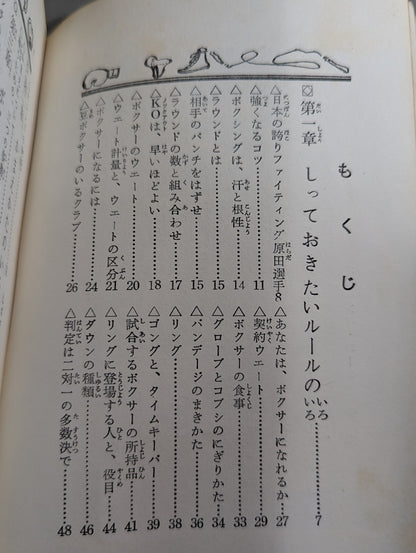 もくじ
◎第一章 しっておきたいルールのいろいろ……7
△日本の誇りファイティング原田選手8
△強くなるコツ……11
△ボクシングは、汗と根性……14
△ラウンドとは……15
△相手のパンチをはずせ……15
△ラウンドの数と組み合わせ……17
△KOは、早いほどよい……18
△ボクサーのウエート……20
△ウエート計量と、ウエートの区分……21
△ボクサーになるには……24
△豆ボクサーのいるクラブ……26
△あなたは、ボクサーになれるか……27
△契約ウエート……29
△ボクサーの食事……33
△グローブとコブシのにぎりかた……34
△バンデージのまきかた……35
△リング……36
△ゴングと、タイムキーパー……38
△試合するボクサーの所持品……39
△リングに登場する人と、役目……41
△ダウンの種類……44
△判定は二対一の多数決で……46
48